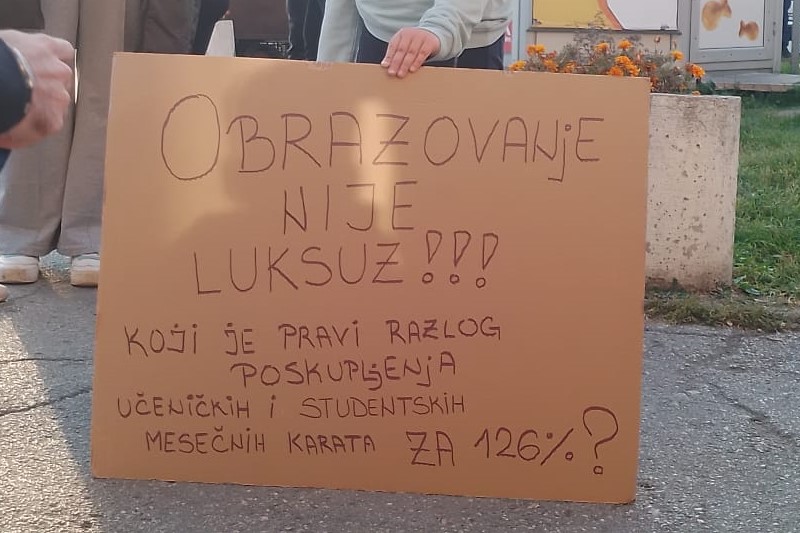 OBRAZOVANjE
NIJE
LUKSUZ!!!
KOJI JE PRAVI RAZLOG
POSKUPLjENjA
UČENIČKIH I STUDENTSKIH
MESEČNIH KARATA ZA 126%?